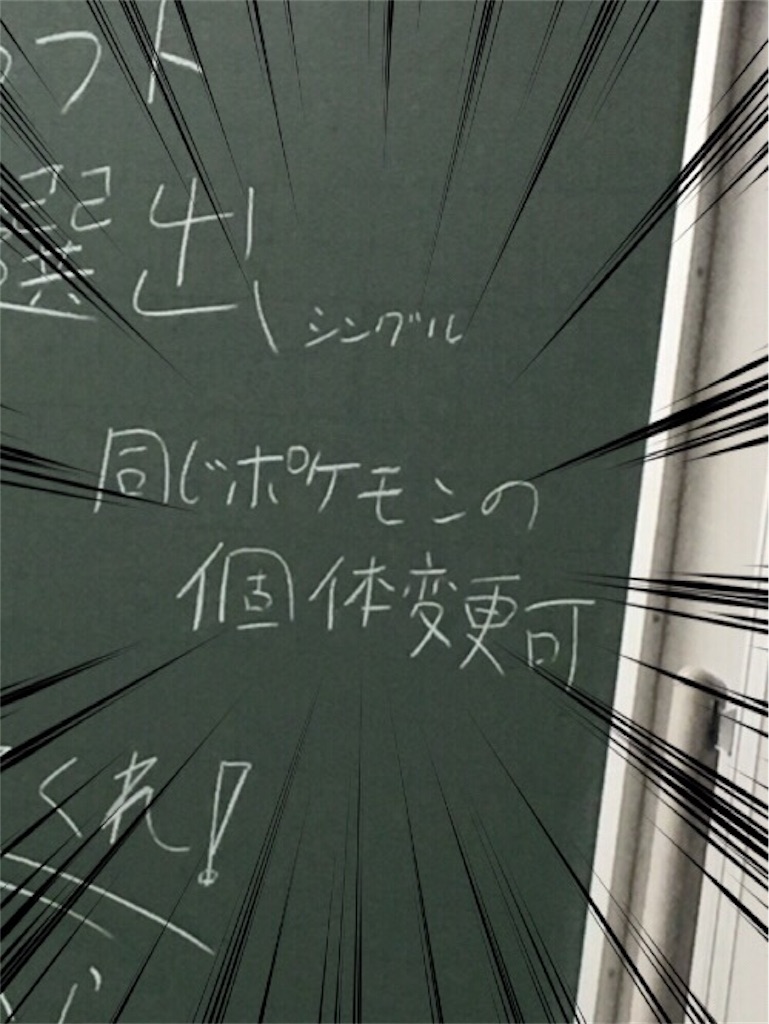 フト
選出
シングル
同じポケモンの
個体変更可
くれ!